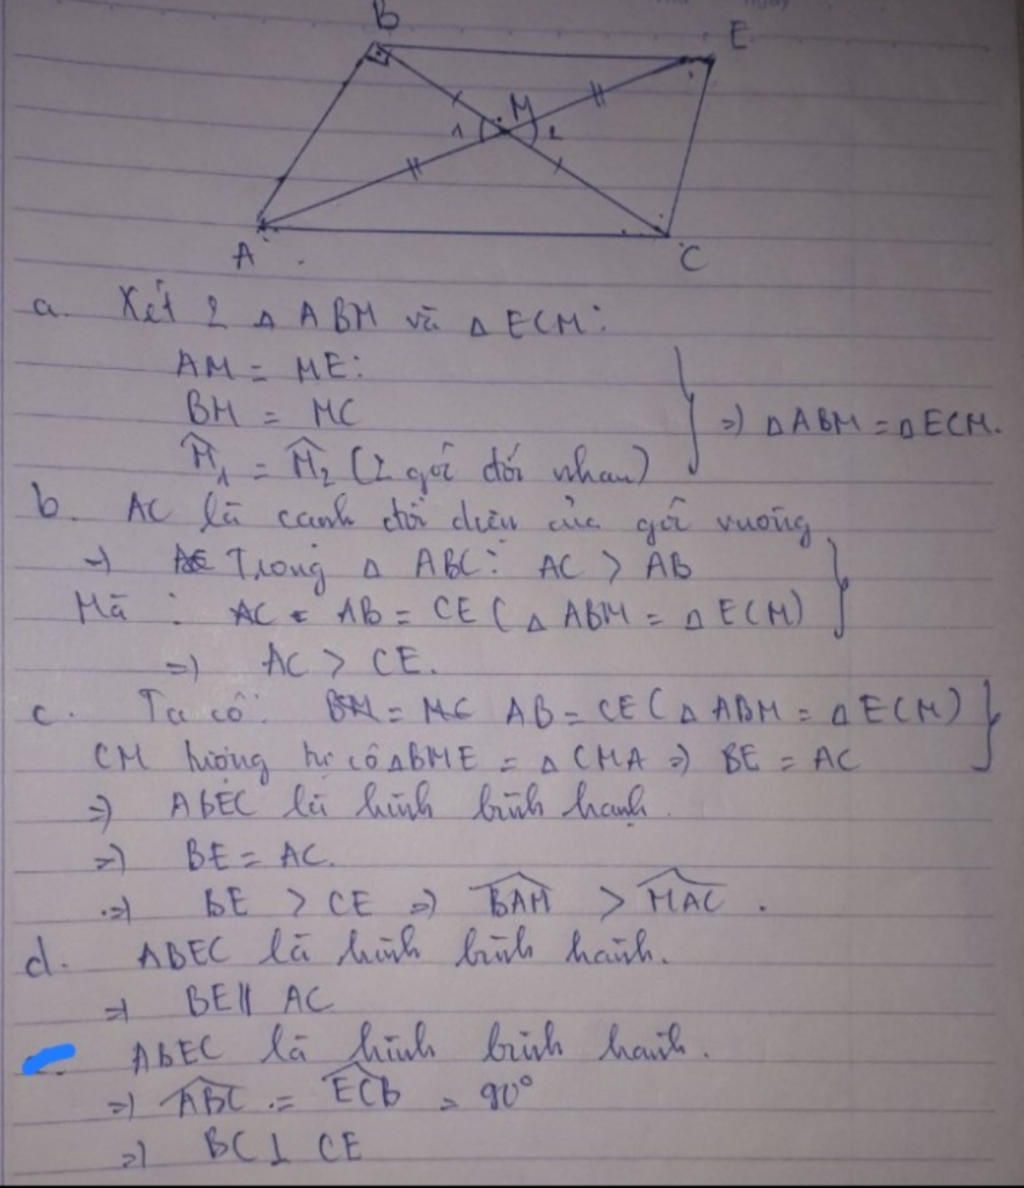 B
E
M
1
2
A
C
a. Xét 2 Δ ABM và Δ ECM:
AM = ME:
BM = MC
=) Δ ABM = Δ ECM.
M̂₁ = M̂₂ (2 góc đối nhau)
b. AC là cạnh đối diện của góc vuông
=) Trong Δ ABC: AC > AB
Mà : AB = CE (Δ ABM = Δ ECM)
=) AC > CE.
c. Ta có: AB = CE (Δ ABM = Δ ECM)
CM tương tự có Δ BME = Δ CMA =) BE = AC
=) ABEC là hình bình hành.
=) BE = AC.
=) BE > CE =) BAM > MAC.
d. ABEC là hình bình hành.
=) BE // AC
ABEC là hình bình hành.
=) ABC = ECB = 90°
=) BC ⊥ CE